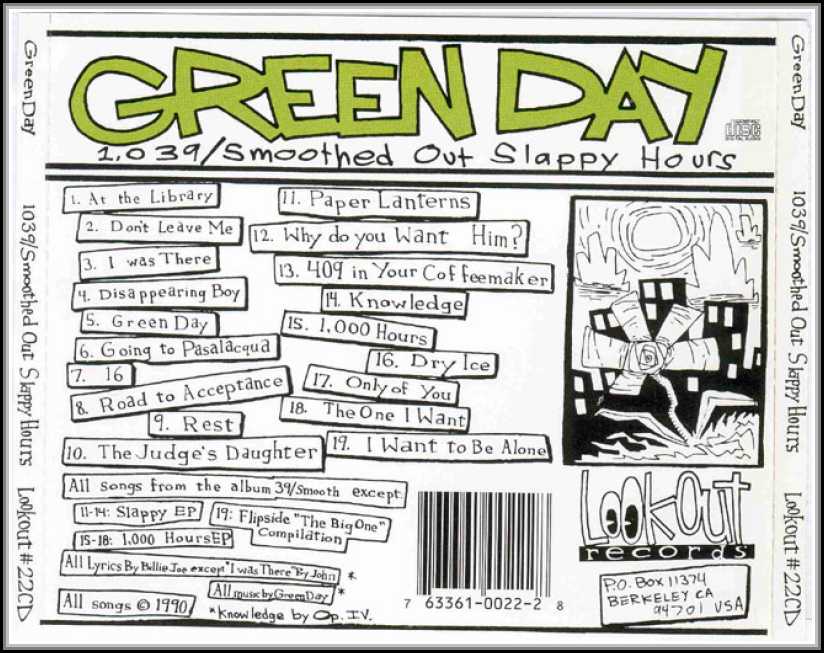 GREEN DAY
DISC
1,039/Smoothed Out Slappy Hours
Green Day
1039/Smoothed Out Slappy Hours
Lookout #22CD
1. At the Library
2. Don't Leave Me
3. I was There
4. Disappearing Boy
5. Green Day
6. Going to Pasalacqua
7. 16
8. Road to Acceptance
9. Rest
10. The Judge's Daughter
11. Paper Lanterns
12. Why do you Want Him?
13. 409 in Your Coffeemaker
14. Knowledge
15. 1,000 Hours
16. Dry Ice
17. Only of You
18. The One I Want
19. I Want to Be Alone
All songs from the album 39/Smooth except:
11-14: Slappy EP
15-18: 1,000 Hours EP
19: Flipside "The Big One"
Compilation
All Lyrics By Billie Joe except "I was There" By John *
All music by Green Day *
All songs © 1990
*Knowledge by Op. I.V.
7 63361-0022-2 8
Lookout
records
P.O. Box 11374
BERKELEY CA
94701 USA
Green Day
1039/Smoothed Out Slappy Hours
Lookout #22CD